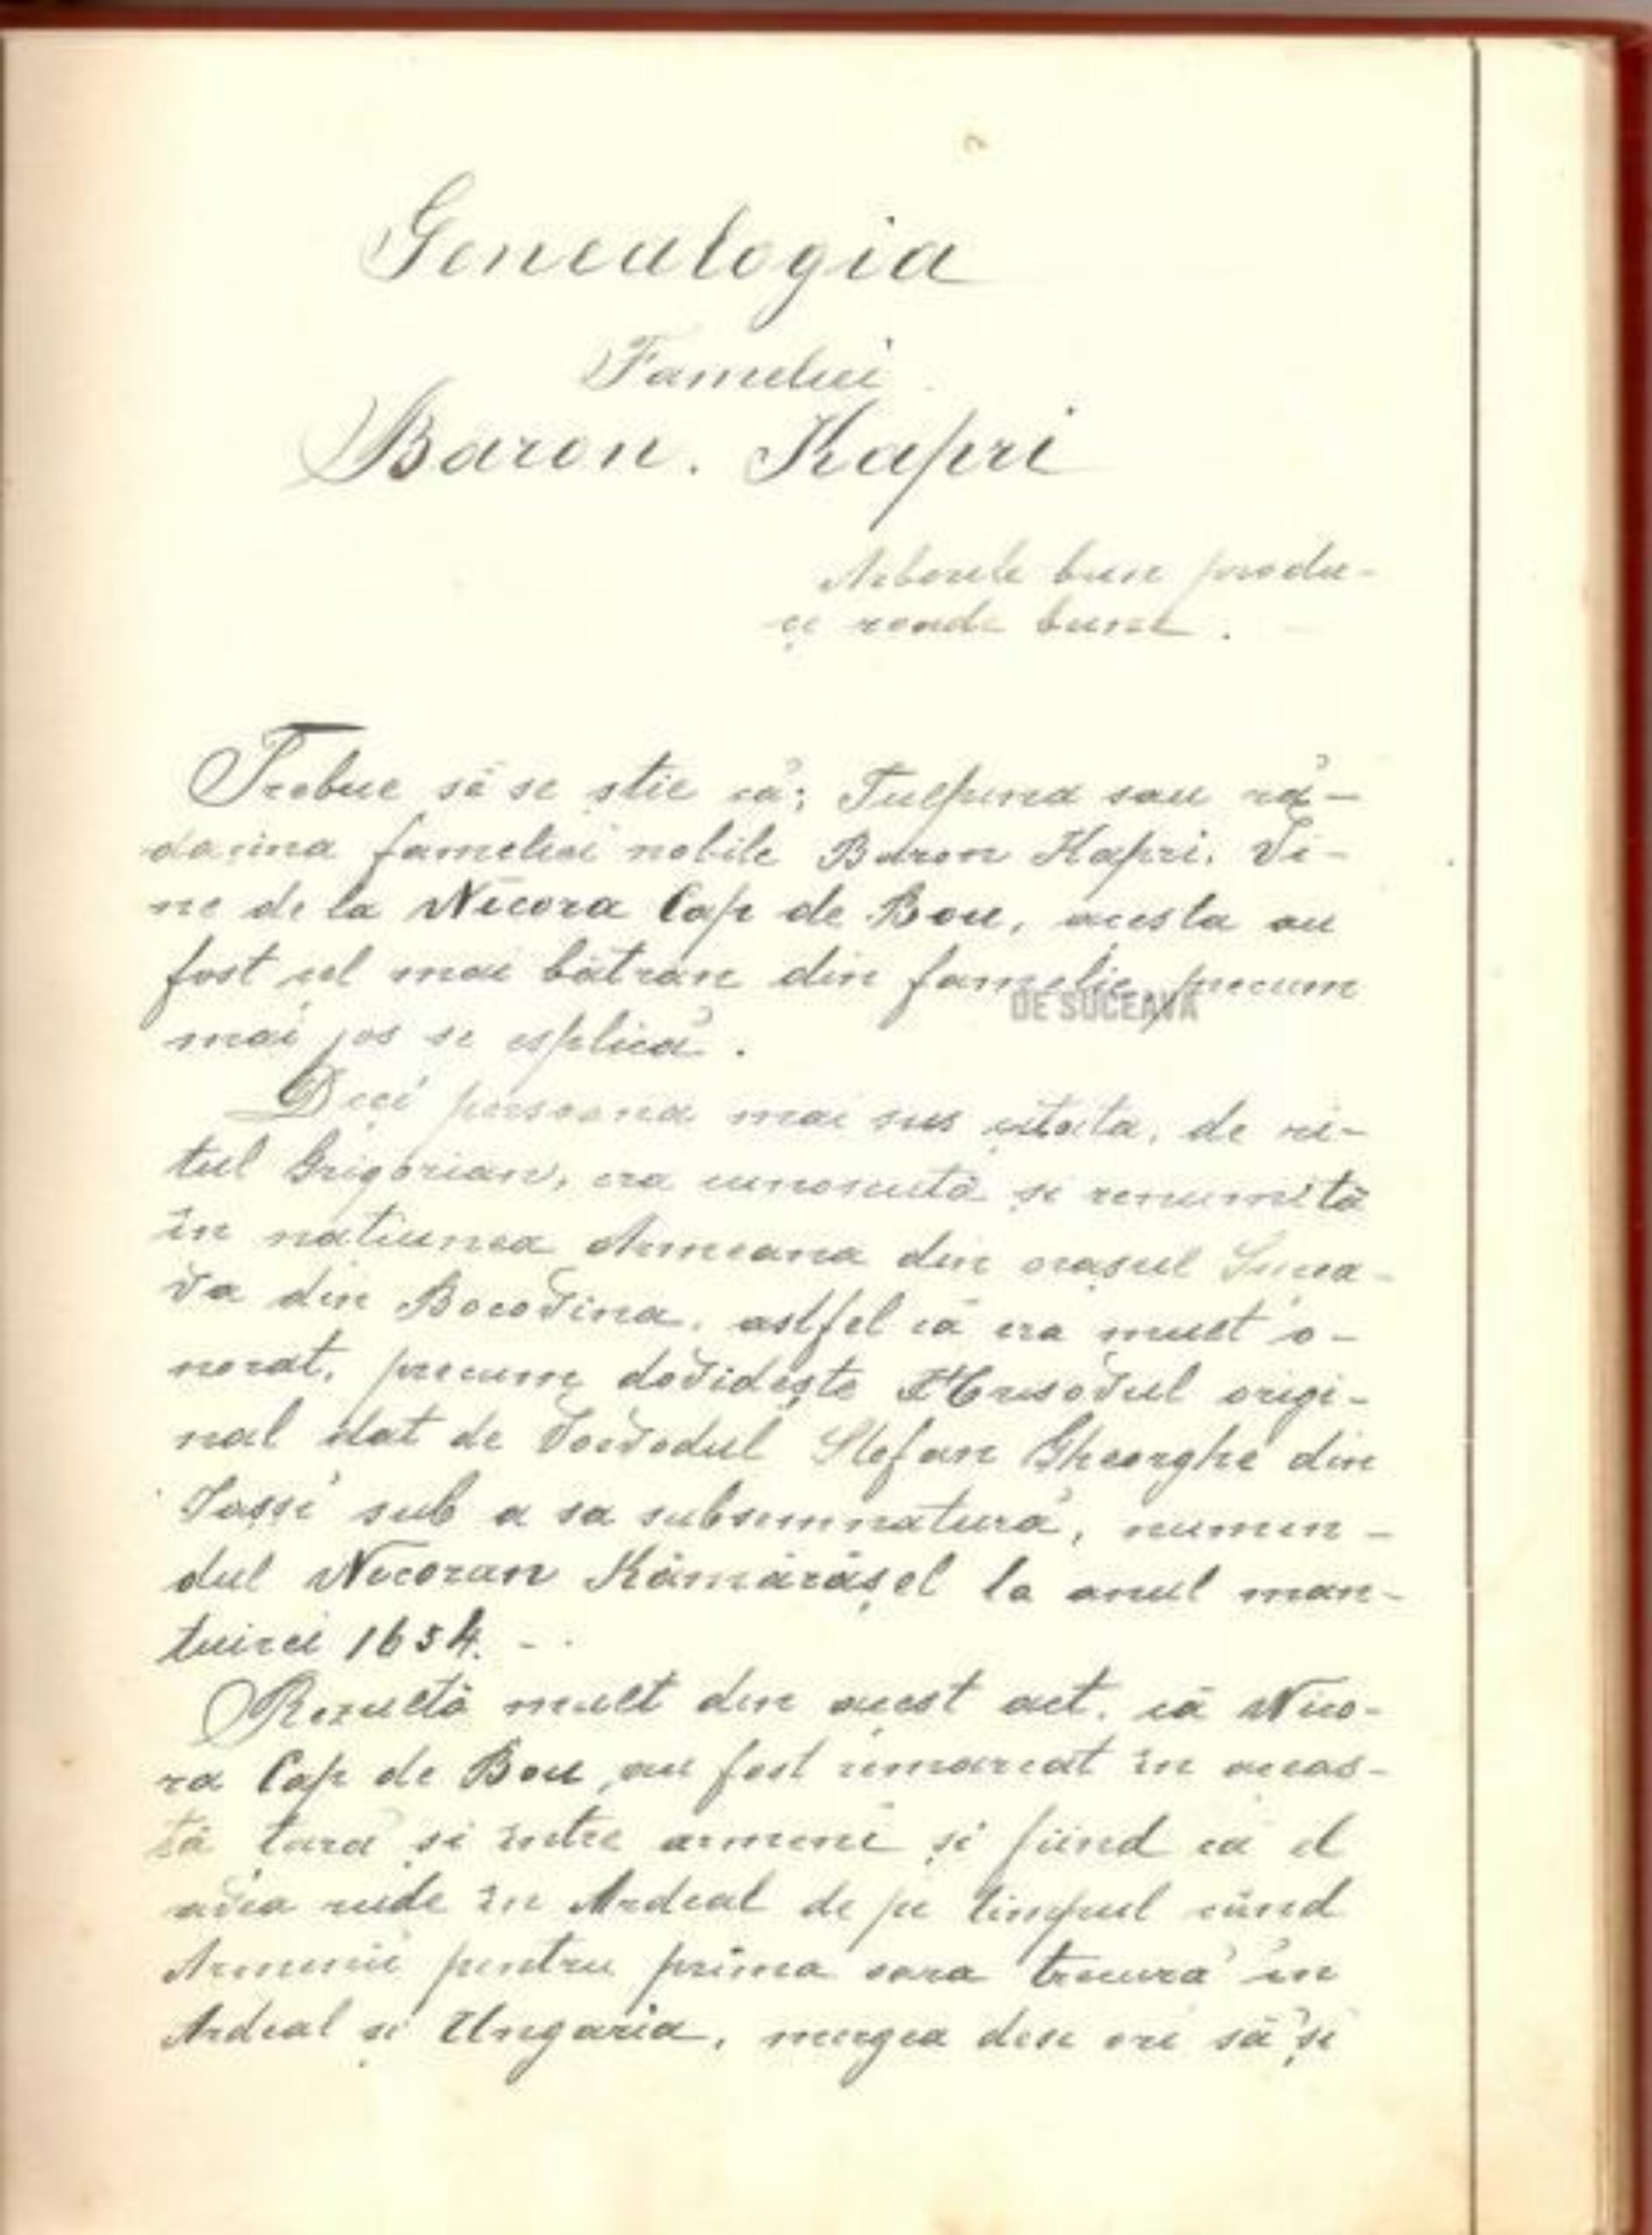 Genealogia
Fameliei
Baron. Kapri
Arborele bun produ-
çe roade bune.
Trebue să se știe că; Tulpina sau ră-
dacina fameliei nobile Baron Kapri. Vi-
ne de la Nicora Cap de Bou, acesta au
fost cel mai bătrân din famelie precum
DE SUCEAVA
mai jos se esplică.
Deçi persoana mai sus çitata, de ri-
tul Grigorian, era cunoscută și renumită
în natiunea Armeana din orașul Sucea-
va din Bocovina. astfel că era mult o-
norat, precum dovidește Hrisovul origi-
nal dat de Voevodul Stefan Gheorghe din
Iassi sub a sa subsemnatură, numin-
dul Nicoran Kămărășel la anul man-
tuirei 1654. -
Rezultă mult din acest act. că Nico-
ra Cap de Bou, au fost remarcat în aceas-
tă țară și între armeni și fiind că el
avea rude în Ardeal de pe timpul când
Armenii pentru prima oara trecură în
Ardeal și Ungaria, mergea dese ori să și